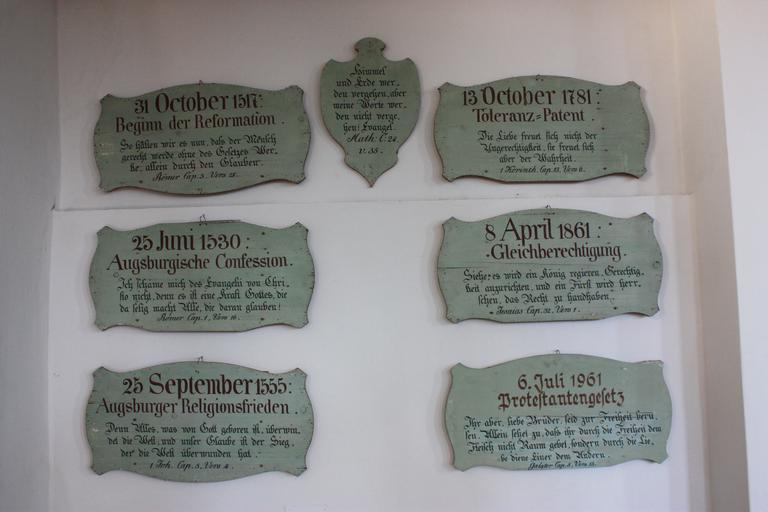 31 October 1517:
Beginn der Reformation.
So halten wir es nun, daß der Mensch
gerecht werde ohne des Gesetzes Wer-
ke, allein durch den Glauben.
Römer Cap. 3. Vers 28.
25 Juni 1530:
Augsburgische Confession.
Ich schäme mich des Evangelii von Chri-
sto nicht, denn es ist eine Kraft Gottes, die
da selig macht Alle, die daran glauben!
Römer Cap. 1, Vers 16.
25 September 1555:
Augsburger Religionsfrieden.
Denn Alles, was von Gott geboren ist, überwin-
det die Welt, und unser Glaube ist der Sieg,
der die Welt überwunden hat.
1 Joh. Cap. 5, Vers 4.
Himmel
und Erde wer-
den vergehen, aber
meine Worte wer-
den nicht verge-
hen! Evangel.
Math: C. 24
v. 35.
13 October 1781:
Toleranz=Patent.
Die Liebe freuet sich nicht der
Ungerechtigkeit, sie freuet sich
aber der Wahrheit.
1 Korinth. Cap. 13, Vers 6.
8 April 1861:
Gleichberechtigung.
Siehe: es wird ein König regieren, Gerechtig-
keit anzurichten, und ein Fürst wird herr-
schen, das Recht zu handhaben.
Jesaias Cap. 32, Vers 1.
6. Juli 1961
Protestantengesetz
Ihr aber, liebe Brüder, seid zur Freiheit beru-
fen. Allein sehet zu, daß ihr durch die Freiheit dem
Fleisch nicht Raum gebet, sondern durch die Lie-
be diene Einer dem Andern.
Galater Cap. 5, Vers 13.